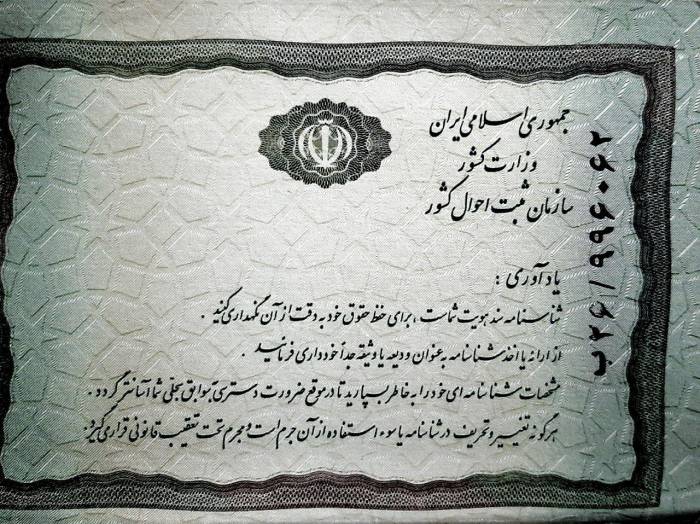 جمهوری اسلامی ایران
وزارت کشور
سازمان ثبت احوال کشور
یادآوری :
شناسنامه سند هویت شماست ، برای حفظ حقوق خود به دقت از آن نگهداری کنید .
از ارائه یا اخذ شناسنامه به عنوان ودیعه یا وثیقه جداً خودداری فرمائید .
مشخصات شناسنامه ای خود را به خاطر بسپارید تا در موقع ضرورت دسترسی به سوابق سجلی شما آسانتر گردد .
هرگونه تغییر و تحریف در شناسنامه یا سوء استفاده از آن جرم است و مجرم تحت تعقیب قانونی قرار می گیرد .
ب۲۶/۹۹۶۰۶۲